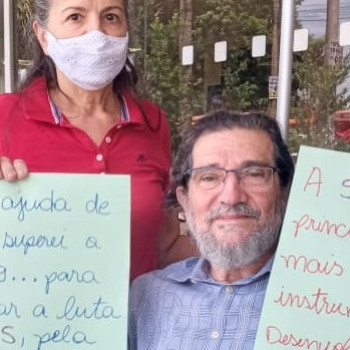 ajuda de
superei a
... para
a luta
S, pela
A
princ
mais
instru
Desenvol